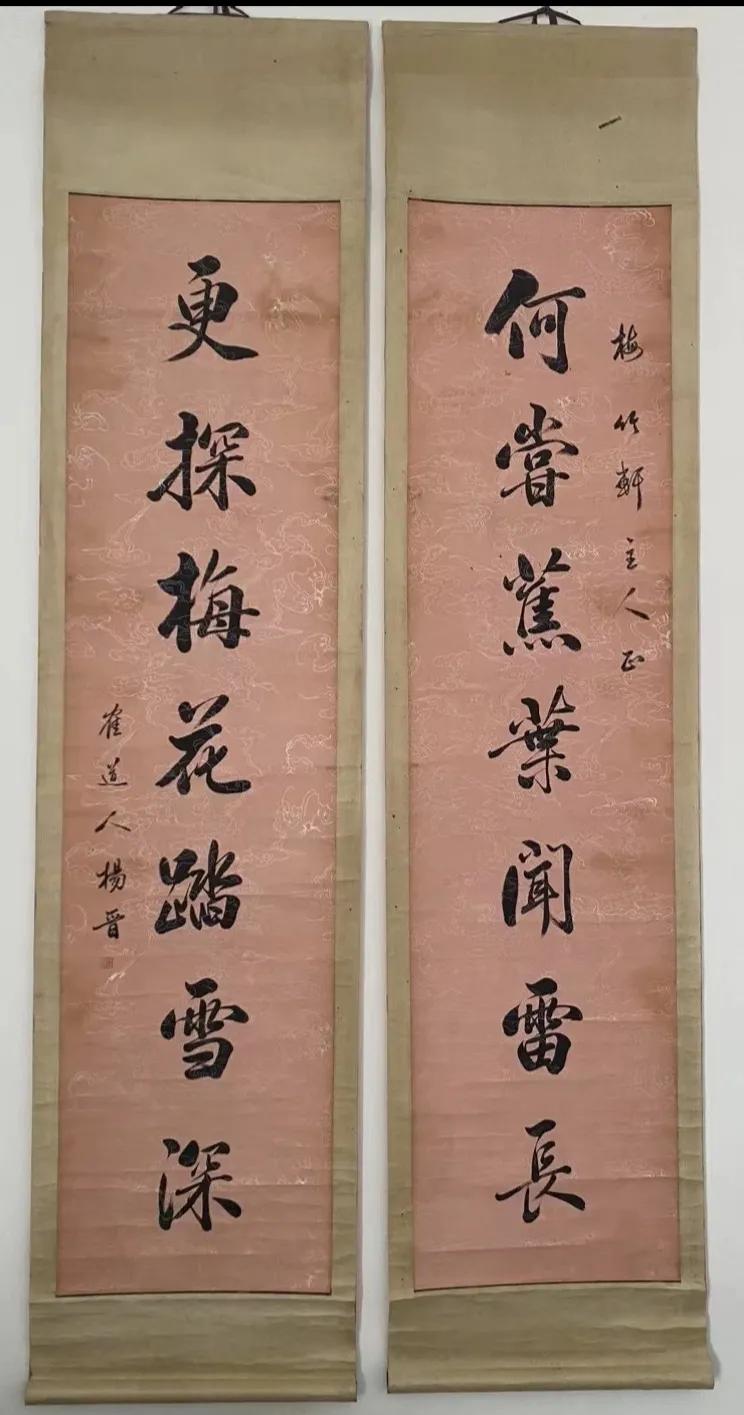 梅竹軒主人正
何嘗蕉葉聞雷長
更探梅花踏雪深
崔道人楊晉